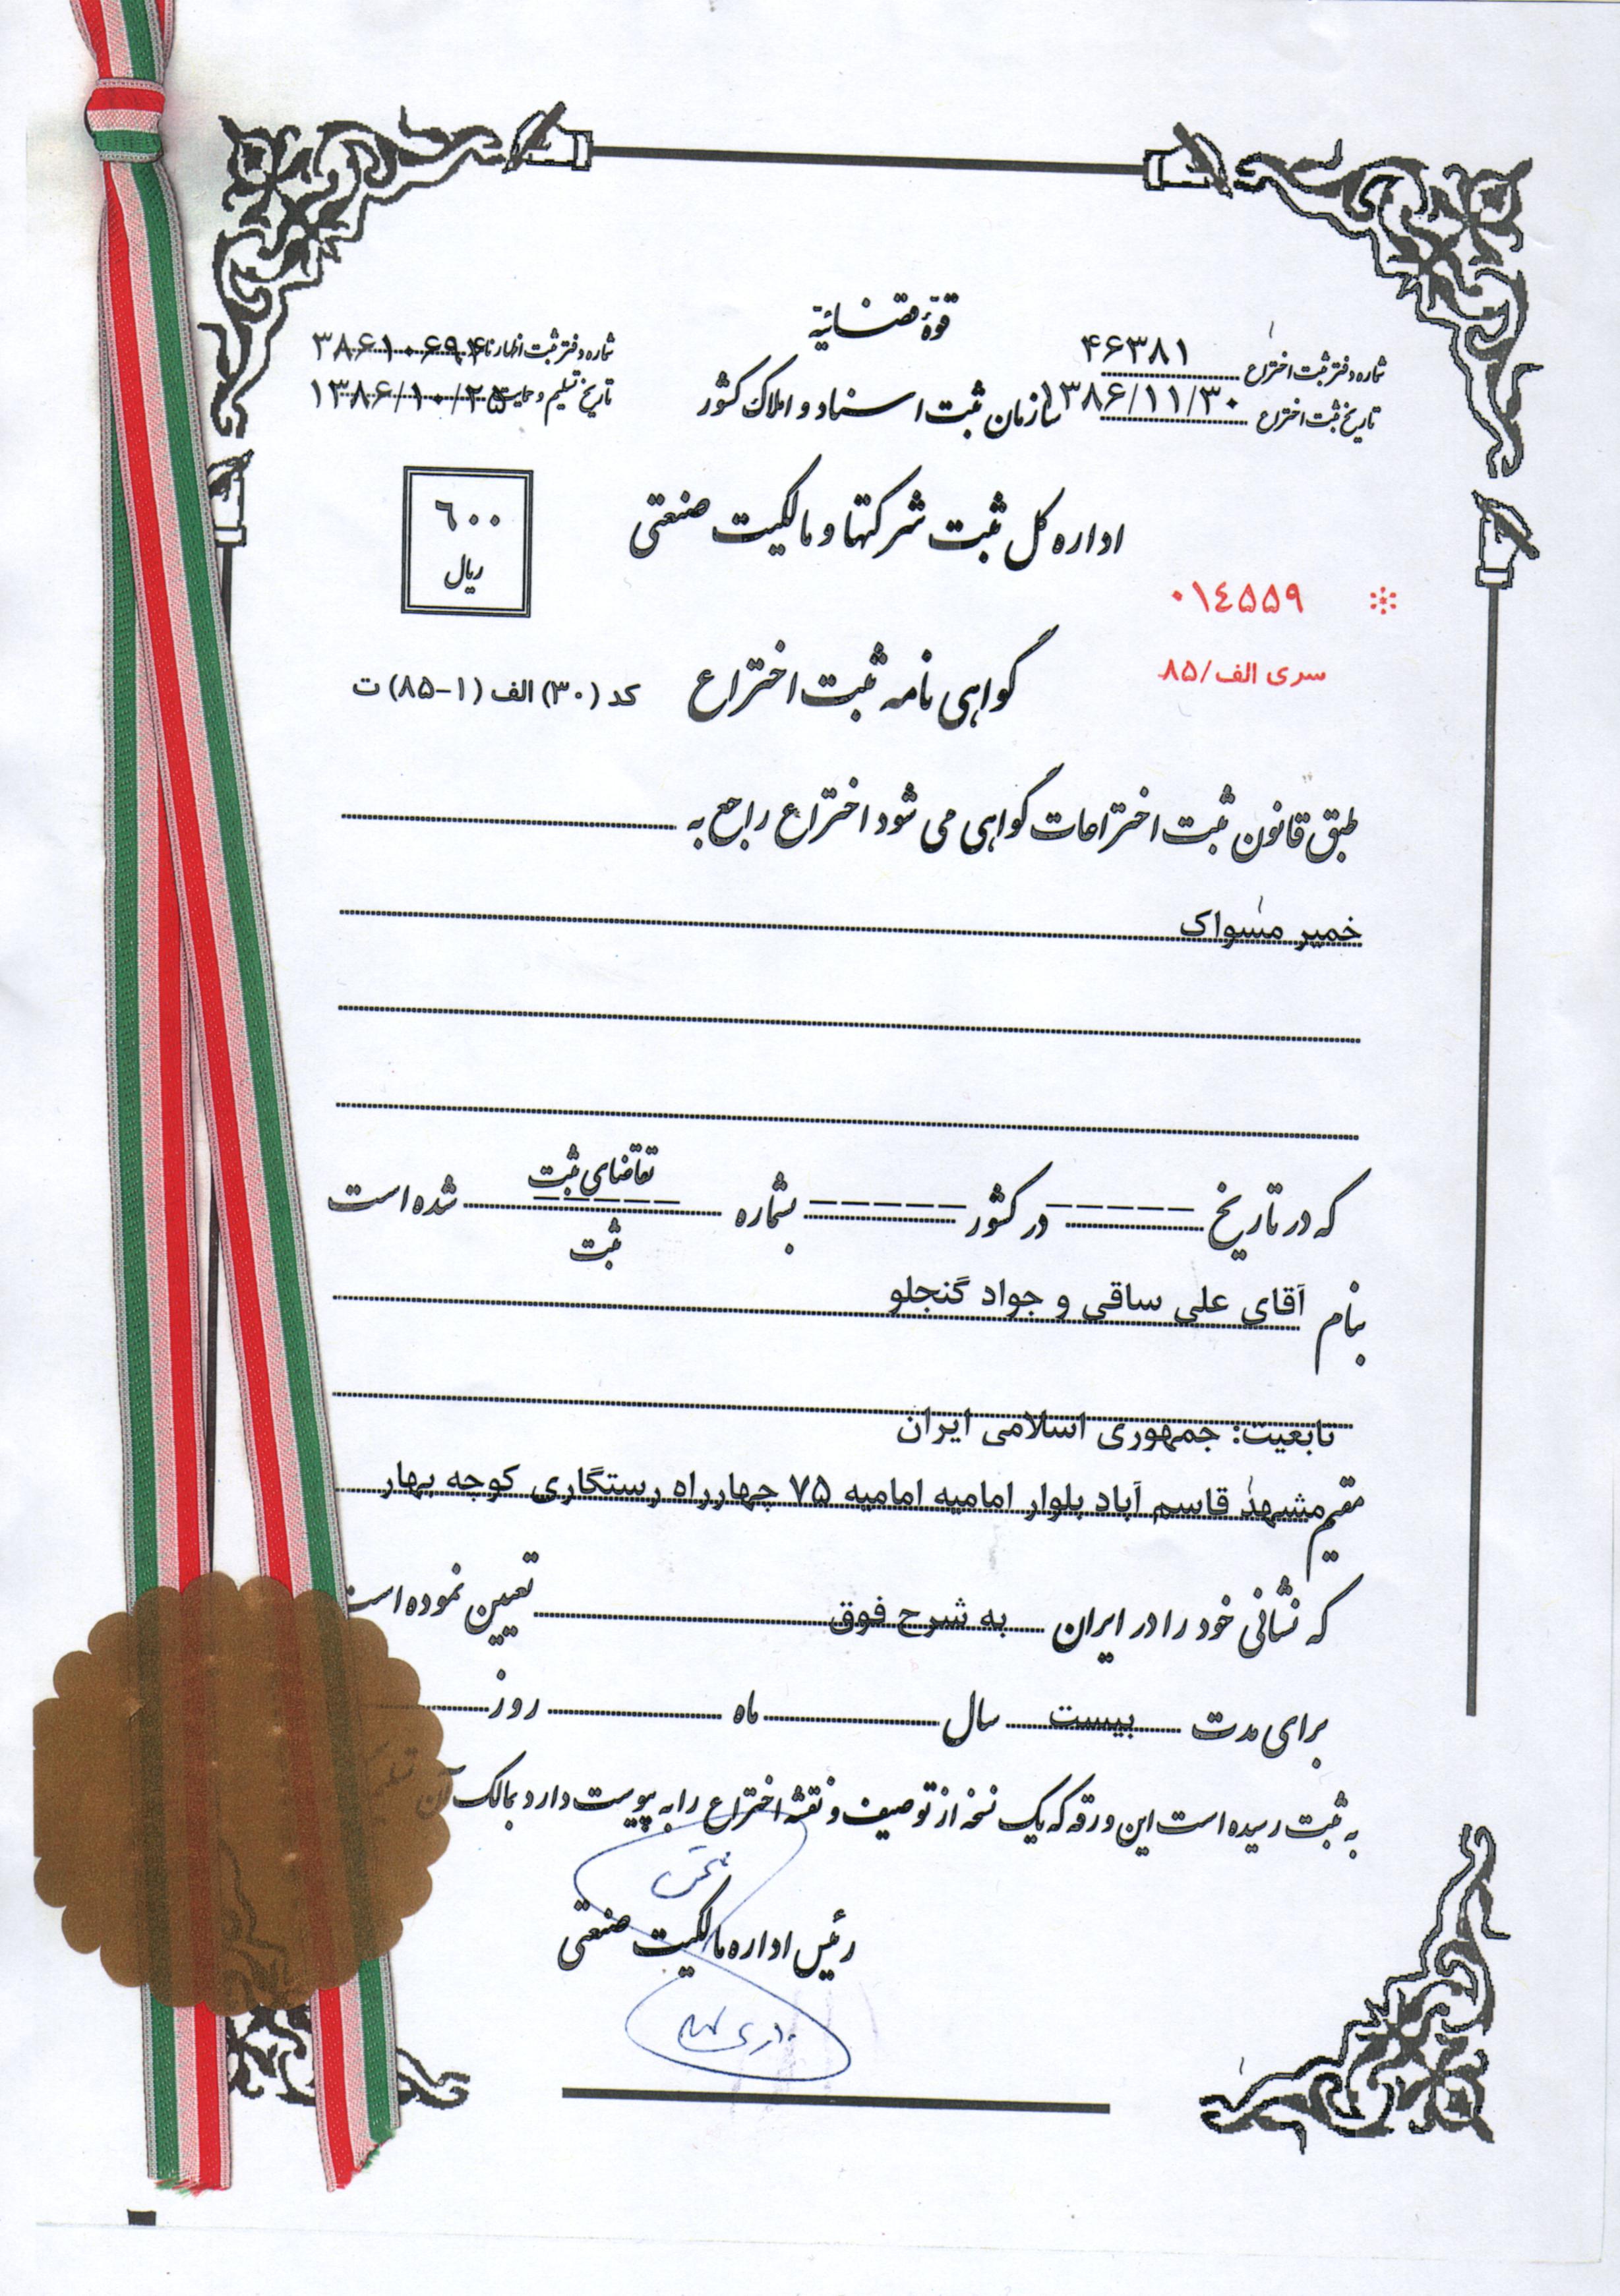 قوّهٔ قضائیّه
شماره دفتر ثبت اختراع ۴۶۳۸۱
تاریخ ثبت اختراع ۱۳۸۶/۱۱/۳۰
سازمان ثبت اسناد و املاک کشور
شماره دفتر ثبت اظهارنامه ۳۸۶۱۰۶۹۴
تاریخ تسلیم و حمایت ۱۳۸۶/۱۰/۲۵
اداره کل ثبت شرکتها و مالکیت صنعتی
۶۰۰
ریال
۰۱۴۵۵۹
سری الف/۸۵
گواهی نامه ثبت اختراع
کد (۳۰) الف (۱-۸۵) ت
طبق قانون ثبت اختراعات گواهی می شود اختراع راجع به
خمیر مسواک
که در تاریخ ------ در کشور ------ بشماره ------ تقاضای ثبت
ثبت
شده است
بنام آقای علی ساقی و جواد گنجلو
تابعیت: جمهوری اسلامی ایران
مقیم مشهد قاسم آباد بلوار امامیه امامیه ۷۵ چهارراه رستگاری کوچه بهار
که نشانی خود را در ایران به شرح فوق تعیین نموده است
برای مدت بیست سال ماه روز
به ثبت رسیده است این ورقه که یک نسخه از توصیف و نقشه اختراع را به پیوست دارد بمالک آن
رئیس اداره مالکیت صنعتی